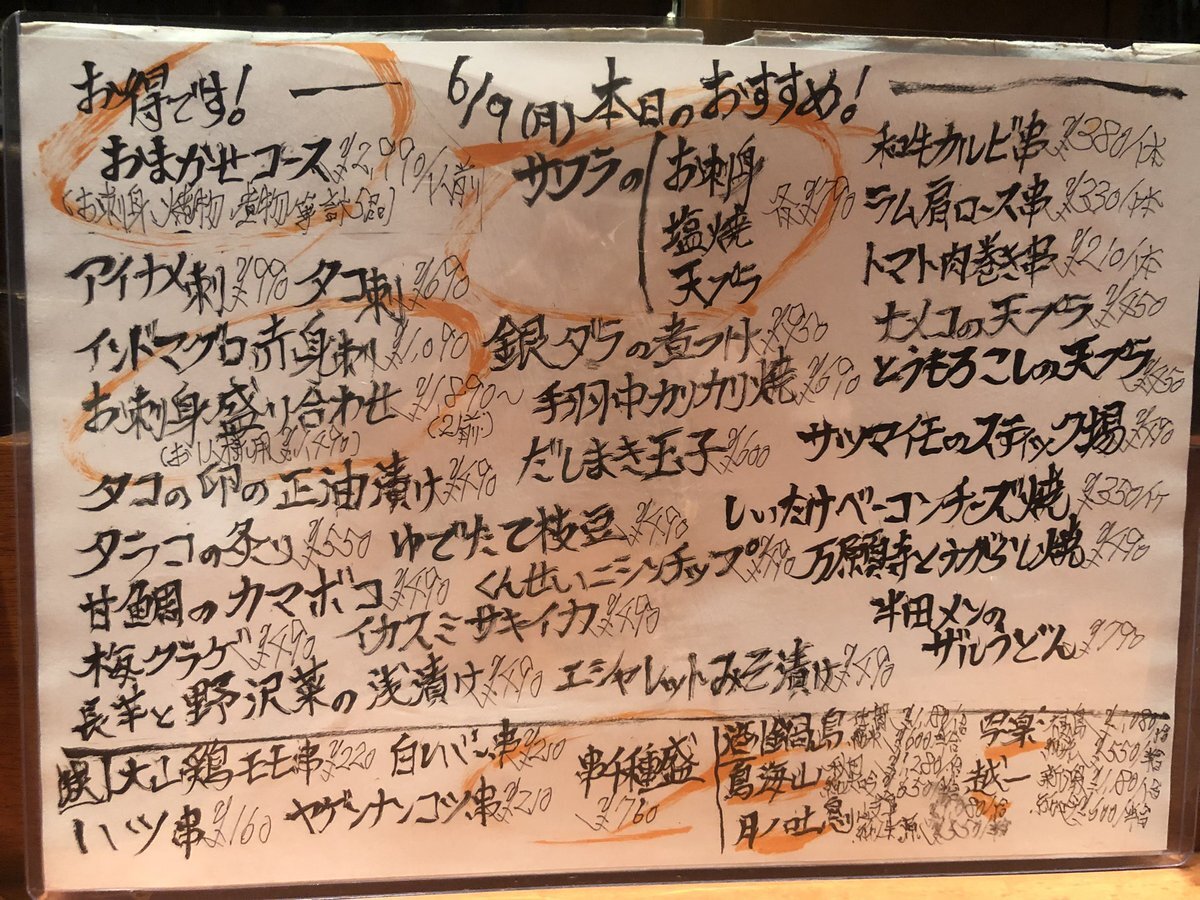 お得です!
6/9(月)本日のおすすめ!
おまかせコース¥2,990/1人前
(お刺身、焼物、煮物等計5品)
アイナメ刺¥990 タコ刺¥690
インドマグロ赤身刺¥1,090
お刺身盛り合わせ¥1,890~
(2人前)
(お1人様用¥1,490)
タコの卵の正油漬け¥490
タラコの炙り¥550 ゆでたて枝豆¥490
甘鯛のカマボコ¥490 くんせいニシンチップ¥490
梅クラゲ¥490 イカスミサキイカ¥490
長芋と野沢菜の浅漬け¥490 エシャレットみそ漬け¥490
サワラの お刺身
塩焼 各¥790
天プラ
銀ダラの煮つけ¥950
手羽中カリカリ焼¥690
だしまき玉子¥600
和牛カルビ串¥380/1本
ラム肩ロース串¥330/1本
トマト肉巻き串¥210/1本
ナメコの天プラ¥450
とうもろこしの天プラ¥650
サツマイモのスティック揚¥490
しいたけベーコンチーズ焼¥350/1ケ
万願寺とうがらし焼¥490
半田メンの
ザルうどん¥790
大山鶏モモ串¥220 白レバー串¥210
ハツ串¥160 ヤゲンナンコツ串¥210
串4種盛
¥760
酒 鍋島 写楽
鳥海山 越一
月ノ吐息